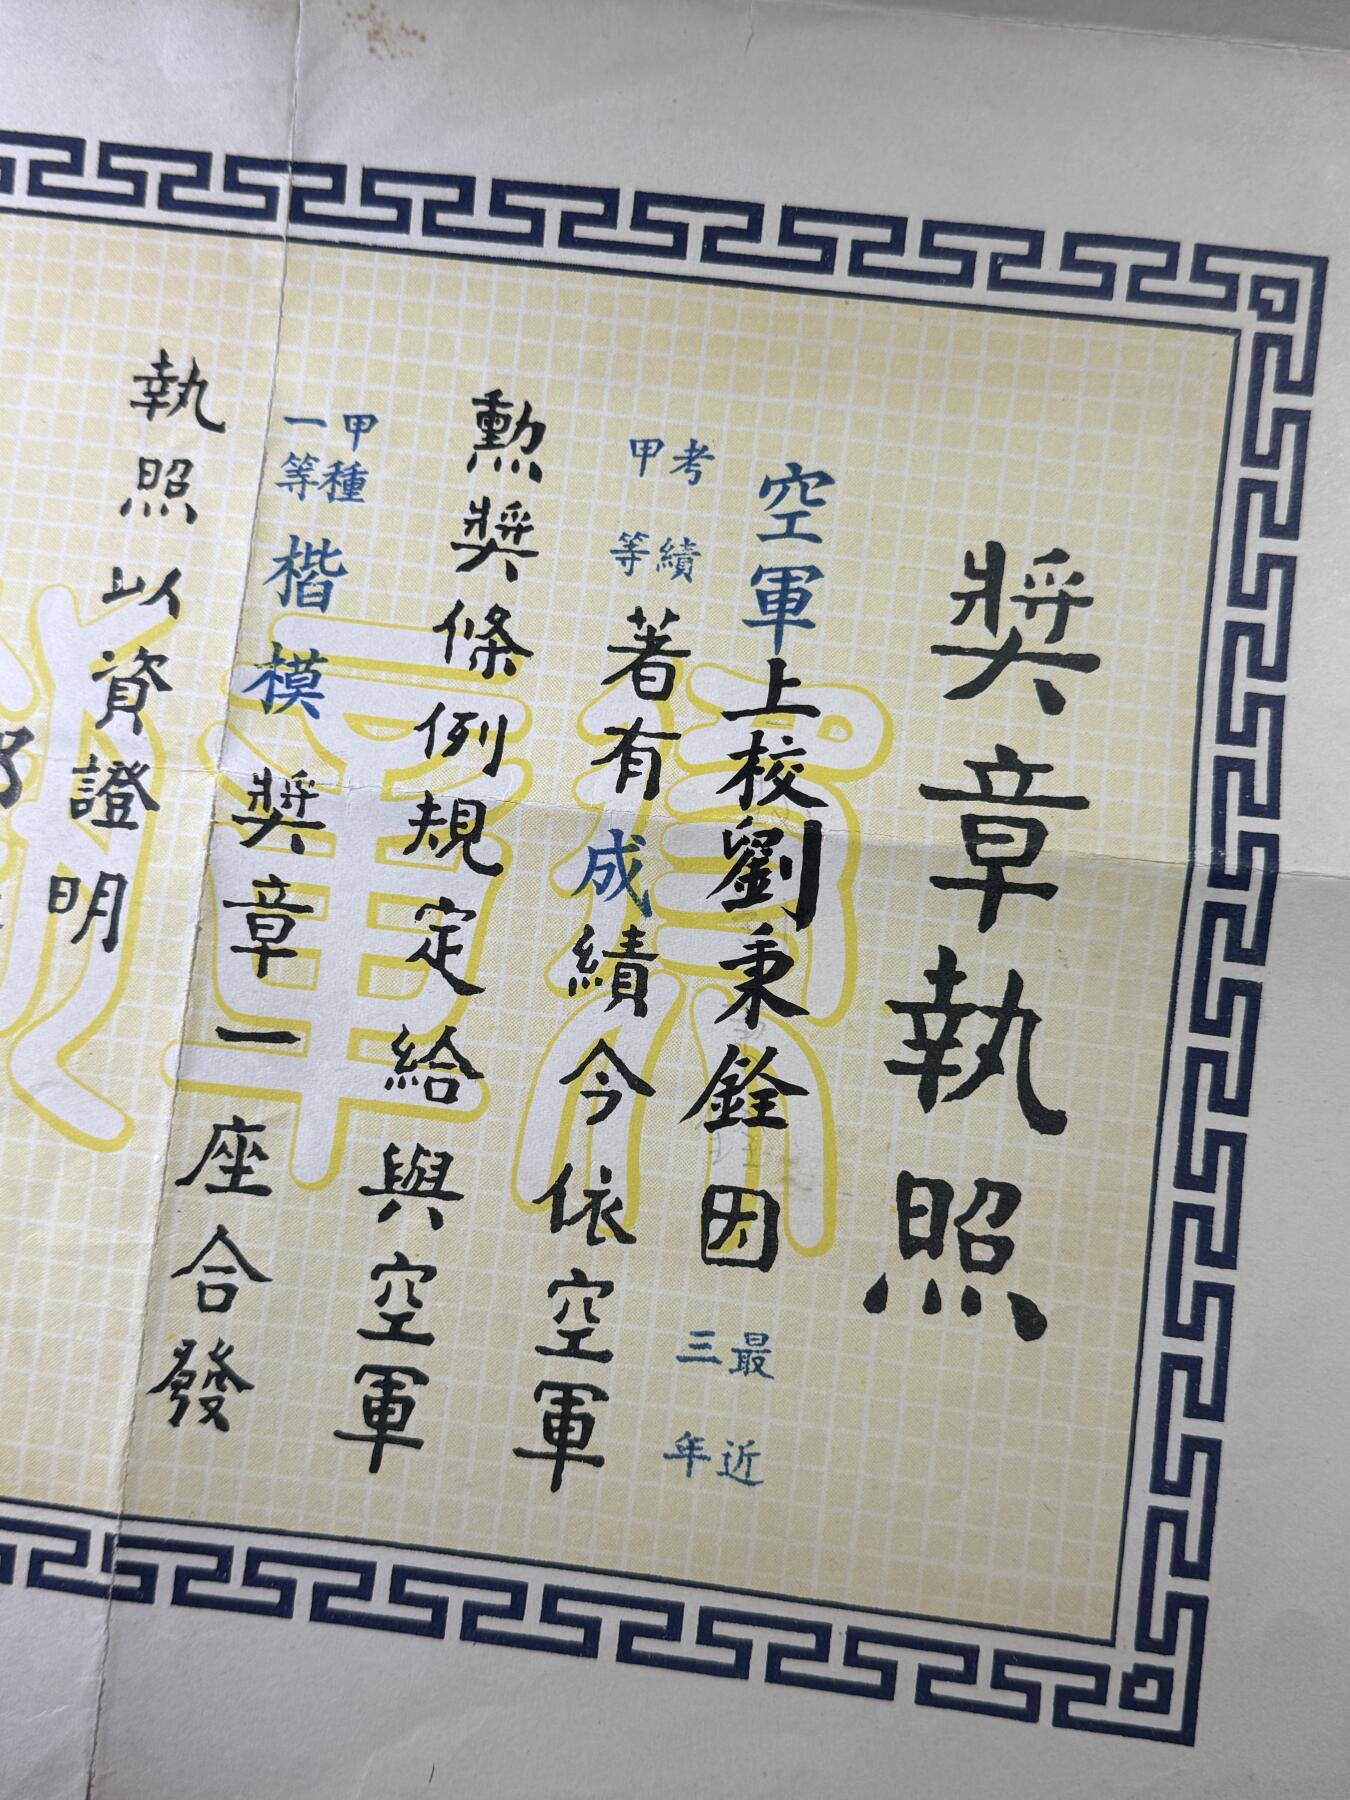 獎章執照
空軍上校劉秉銓因最近三年
考績甲等著有成績今依空軍
勲獎條例規定給與空軍
甲種一等楷模獎章一座合發
執照以資證明